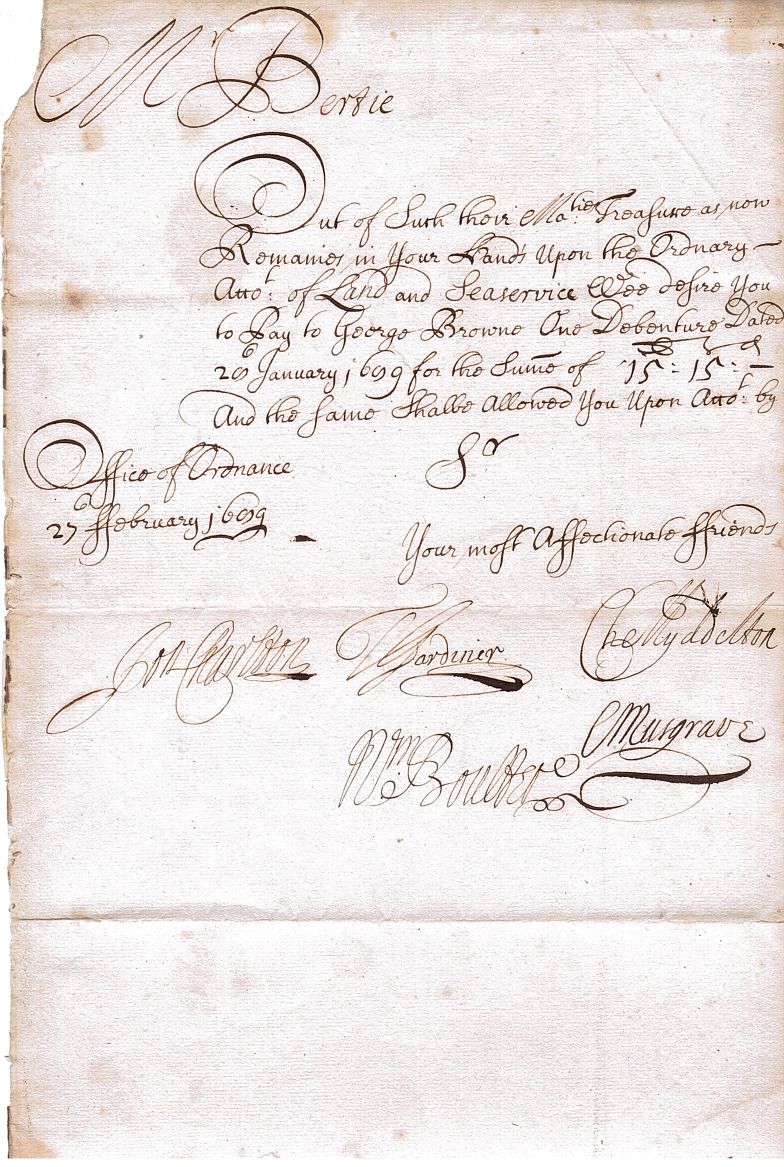 Mr Bertie
Out of Such their Ma:ties Treasure as now
Remaines in Your Hands Upon the Ordnary
Acco:t of Land and Seaservice Wee desire You
to Pay to George Browne One Debenture Dated
January 1689 for the Sume of 15: 15: —
And the same Shalbe Allowed You Upon Acco:t by
Sr
Office of Ordnance
27 ffebruary 1689
Your most Affectionate ffriends
Jon Charlton Gardiner Che Myddelton
C Musgrave
Wm Boulter